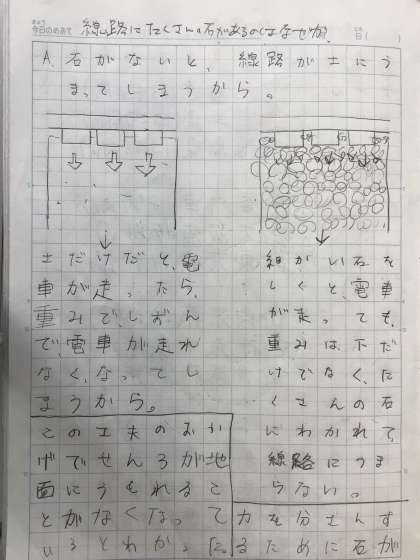 今日のめあて
線路にたくさん石があるのはなぜか?
日( )
A.石がないと、線路が土にう
まってしまうから。
土だけだと、電
車が走ったら、
重みで、しずん
で、電車が走れ
なく、なってし
まうから。
この工夫のおか
げでせんろが地
面にうもれるこ
とがなくなって
いるとわかった。
細かい石を
しくと、電車
が走っても、
重みは下だ
けでなく、た
くさんの石
にわかれて、
線路にうま
らない。
力を分さんす
るために石が